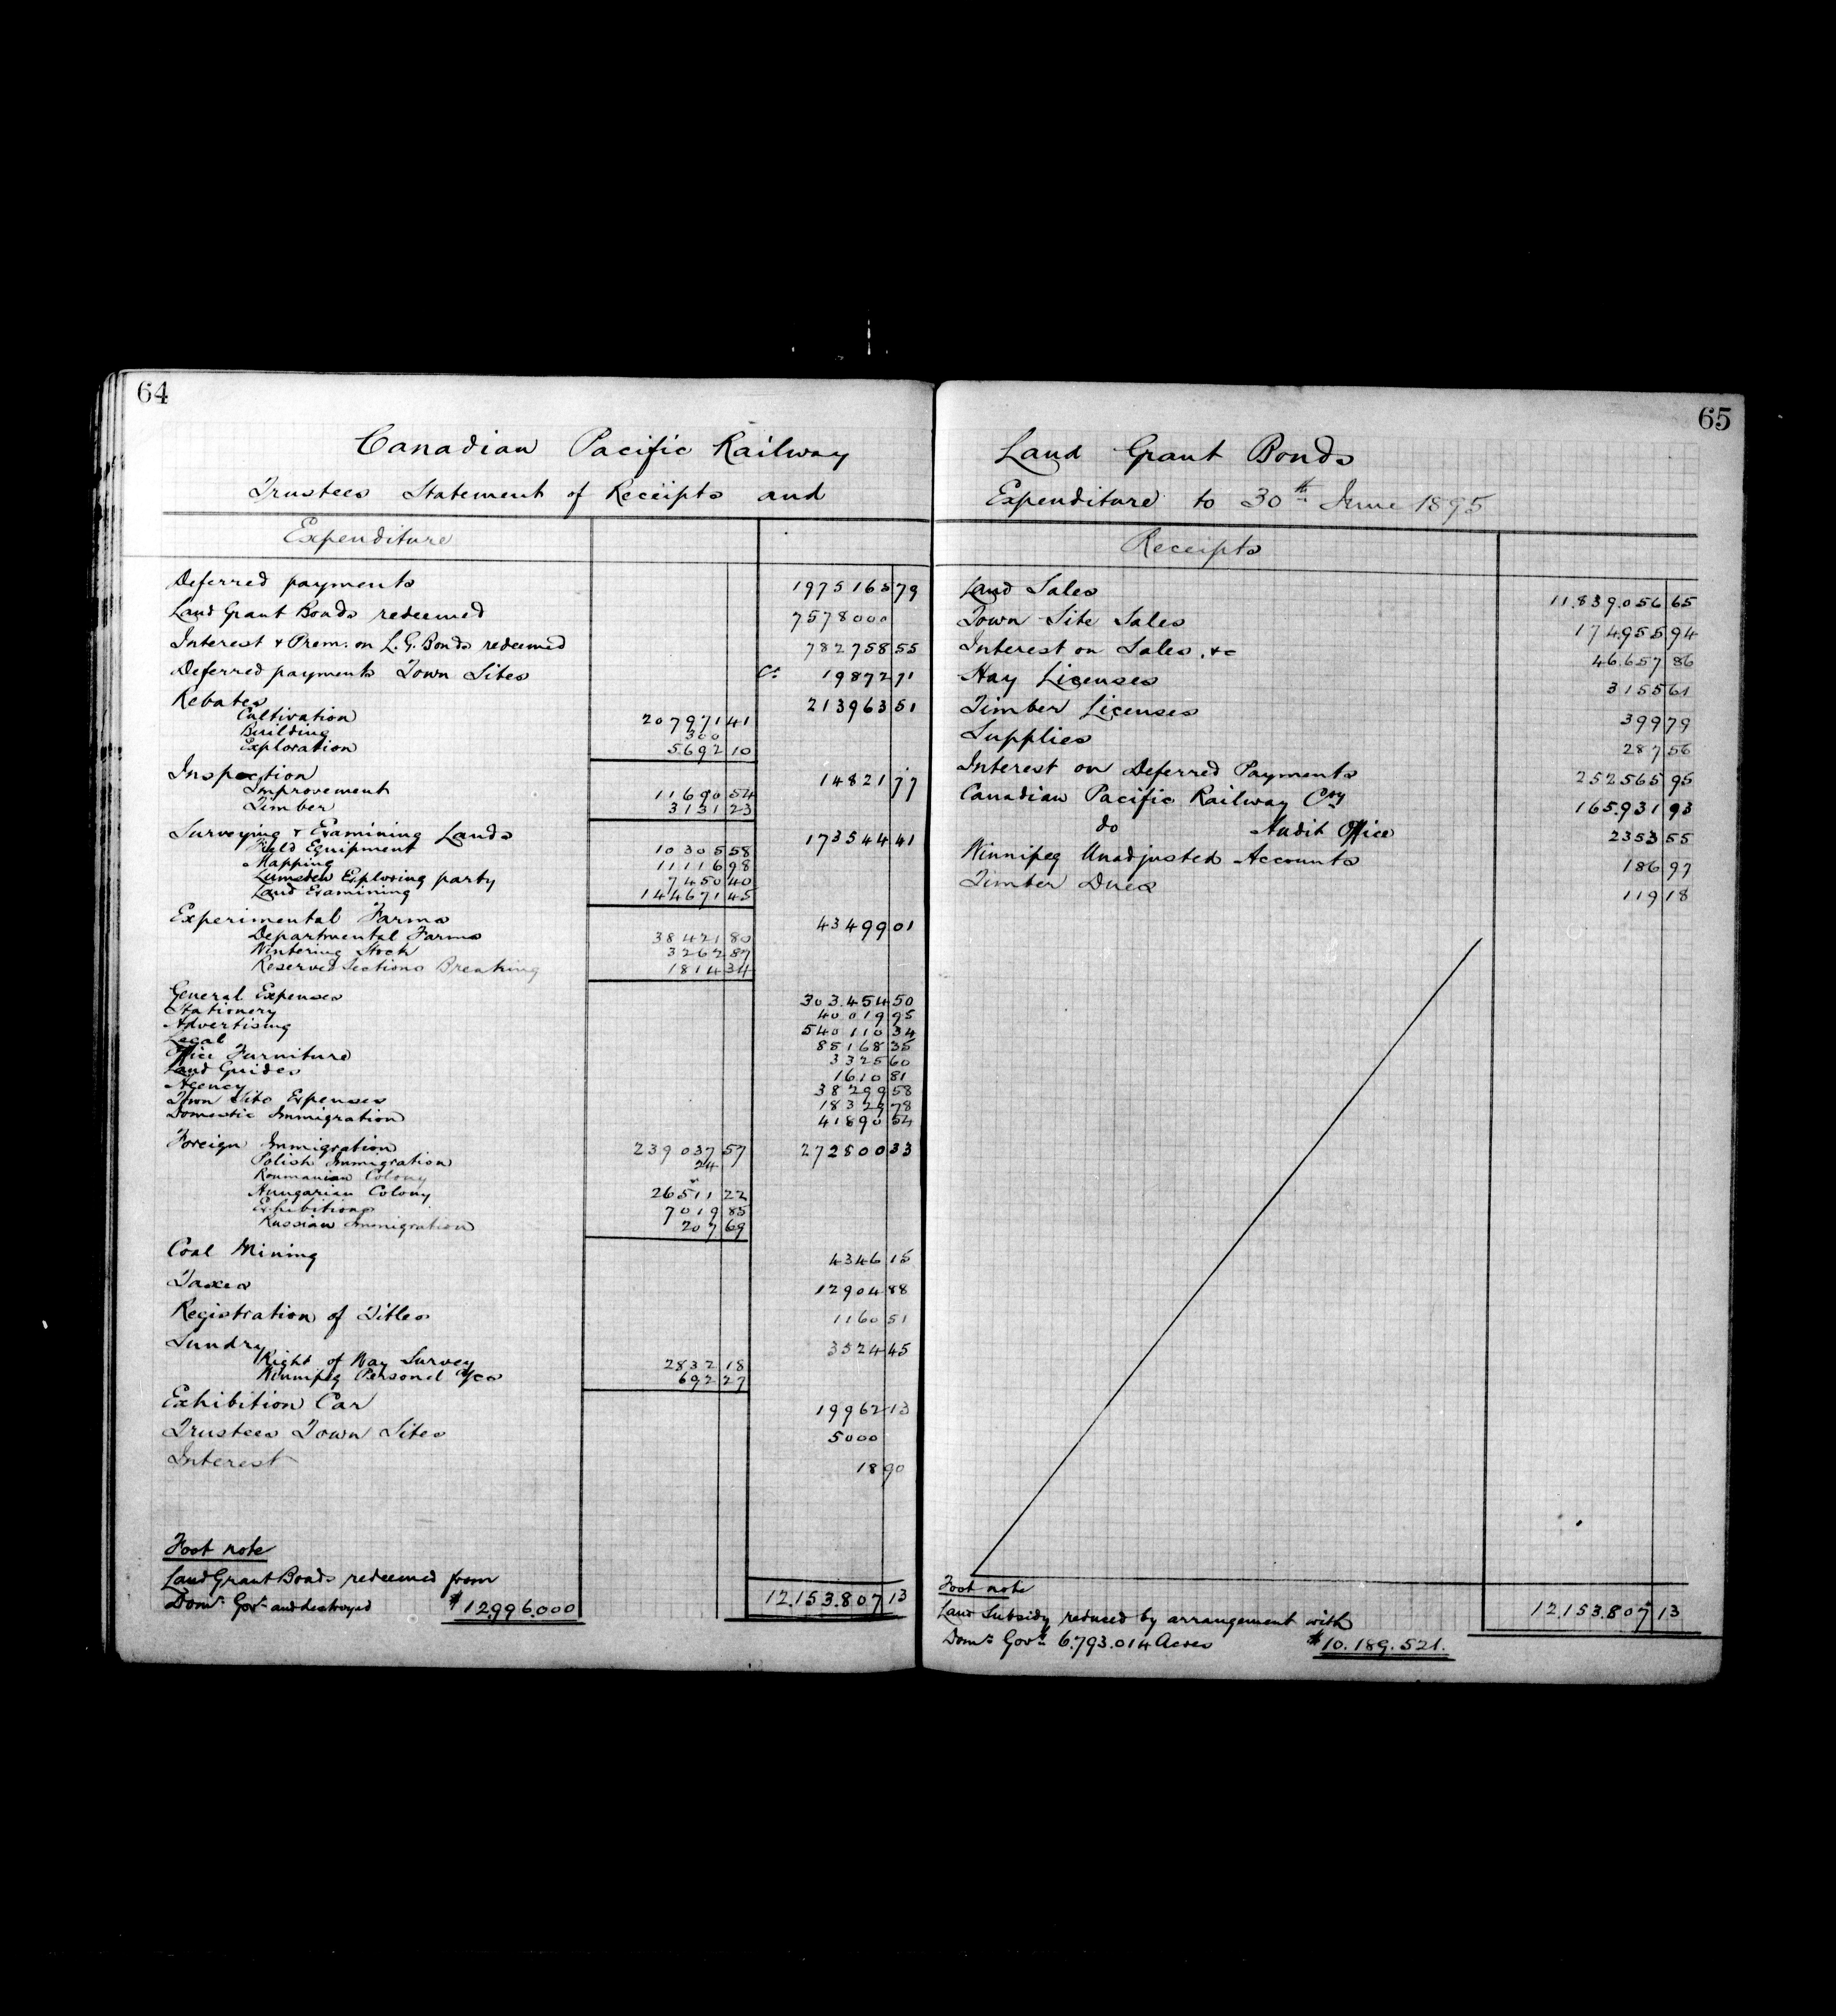 64
Canadian Pacific Railway
Trustees Statement of Receipts and
Expenditure
Deferred payments 1975165 79
Land Grant Bonds redeemed 7578000
Interest + Prem: on L. G. Bonds redeemed 782758 55
Deferred payments Town Sites Cr 19872 71
Rebates 213963 51
Cultivation 207971 41
Building 300
Exploration 5692 10
Inspection 14821 77
Improvement 11690 54
Timber 3131 23
Surveying + Examining Lands 173544 41
Field Equipment 10305 58
Mapping 11116 98
Lumsden Exploring party 7450 40
Land Examining 144671 45
Experimental Farms 43499 01
Departmental Farms 38421 80
Wintering Stock 3262 87
Reserved Sections Breaking 1814 34
General Expenses 303.454 50
Stationery 40019 95
Advertising 540110 34
Legal 85168 35
Office Furniture 3325 60
Land Guides 1610 81
Agency 38299 58
Town Site Expenses 18329 78
Domestic Immigration 41890 54
Foreign Immigration 239037 57 272800 33
Polish Immigration 24
Roumanian Colony "
Hungarian Colony 26511 22
Exhibitions 7019 85
Russian Immigration 207 69
Coal Mining 4346 15
Taxes 12904 88
Registration of Titles 1160 51
Sundry 3524 45
Right of Way Survey 2832 18
Winnipeg Personal a/cs 692 27
Exhibition Car 19962 13
Trustees Town Sites 5000
Interest 18 90
Foot note
Land Grant Bonds redeemed from
Domn Govt and destroyed $12.996.000
12.153.807 13
65
Land Grant Bonds
Expenditure to 30th June 1895
Receipts
Land Sales 11.839.056 65
Town Site Sales 174.955 94
Interest on Sales. +c 46.657 86
Hay Licenses 3155 61
Timber Licenses 399 79
Supplies 287 56
Interest on Deferred Payments 252.565 95
Canadian Pacific Railway Coy 165.931 93
do Audit Office 2353 55
Winnipeg Unadjusted Accounts 186 97
Timber Dues 119 18
Foot note
Land Subsidy reduced by arrangement with
Domn Govt 6.793.014 Acres $10.189.521.
12.153.807 13